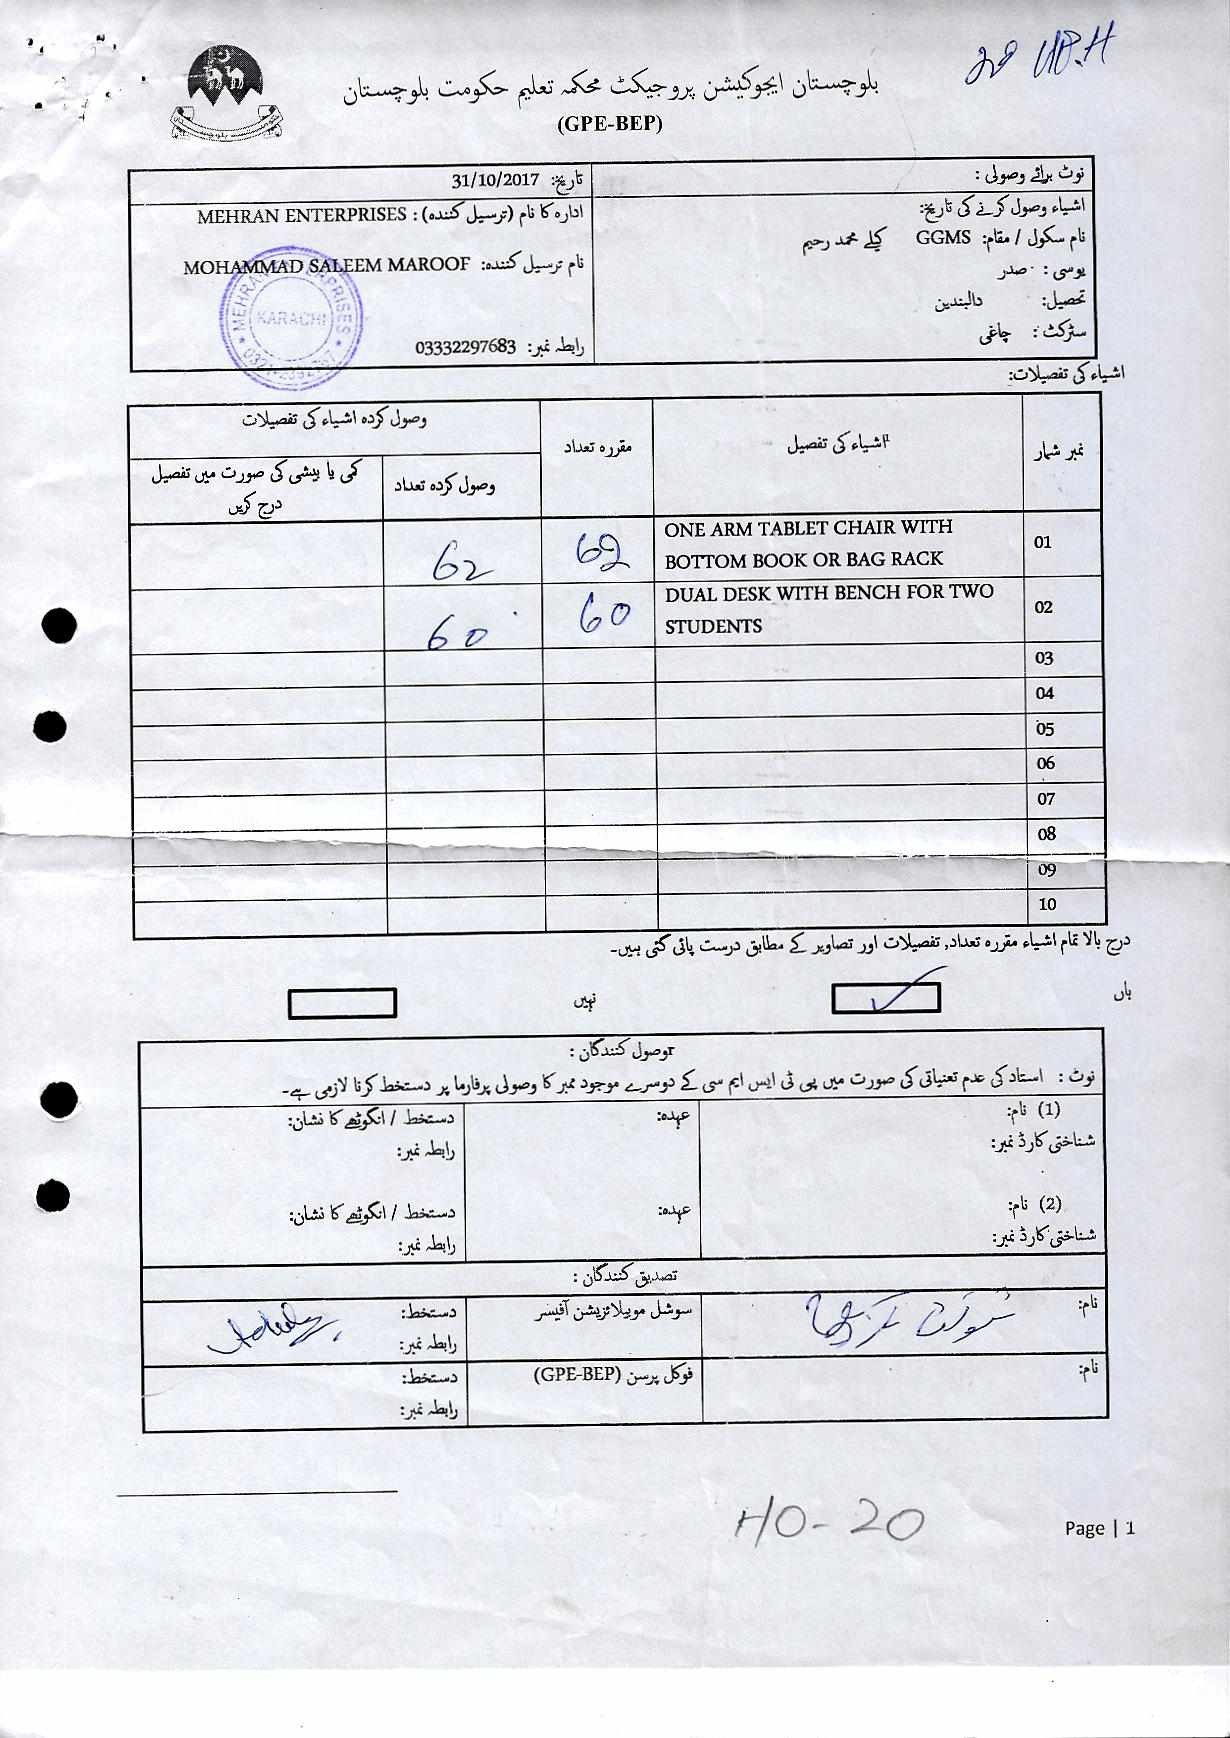 بلوچستان ایجوکیشن پروجیکٹ محکمہ تعلیم حکومت بلوچستان
(GPE-BEP)
نوٹ برائے وصولی :
اشیاء وصول کرنے کی تاریخ:
نام سکول / مقام: GGMS کیلے محمد رحیم
یوسی : صدر
تحصیل: دالبندین
سٹرکٹ : چاغی
تاریخ: 31/10/2017
ادارہ کا نام (ترسیل کنندہ) : MEHRAN ENTERPRISES
نام ترسیل کنندہ: MOHAMMAD SALEEM MAROOF
رابطہ نمبر: 03332297683
MEHRAN ENTERPRISES
KARACHI
اشیاء کی تفصیلات:
نمبر شمار
اشیاء کی تفصیل
مقررہ تعداد
وصول کردہ اشیاء کی تفصیلات
وصول کردہ تعداد
کمی یا بیشی کی صورت میں تفصیل
درج کریں
01 ONE ARM TABLET CHAIR WITH
BOTTOM BOOK OR BAG RACK 62 62
02 DUAL DESK WITH BENCH FOR TWO
STUDENTS 60 60
03
04
05
06
07
08
09
10
درج بالا تمام اشیاء مقررہ تعداد, تفصیلات اور تصاویر کے مطابق درست پائی گئی ہیں۔
ہاں
نہیں
rوصول کنندگان :
نوٹ : استاد کی عدم تعنیاتی کی صورت میں پی ٹی ایس ایم سی کے دوسرے موجود ممبر کا وصولی پرفارما پر دستخط کرنا لازمی ہے۔
(1) نام: عہدہ: دستخط / انگوٹھے کا نشان:
شناختی کارڈ نمبر: رابطہ نمبر:
(2) نام: عہدہ: دستخط / انگوٹھے کا نشان:
شناختی کارڈ نمبر: رابطہ نمبر:
تصدیق کنندگان :
نام: سوشل موبیلائزیشن آفیسر دستخط:
رابطہ نمبر:
نام: فوکل پرسن (GPE-BEP) دستخط:
رابطہ نمبر:
HO-20
Page | 1